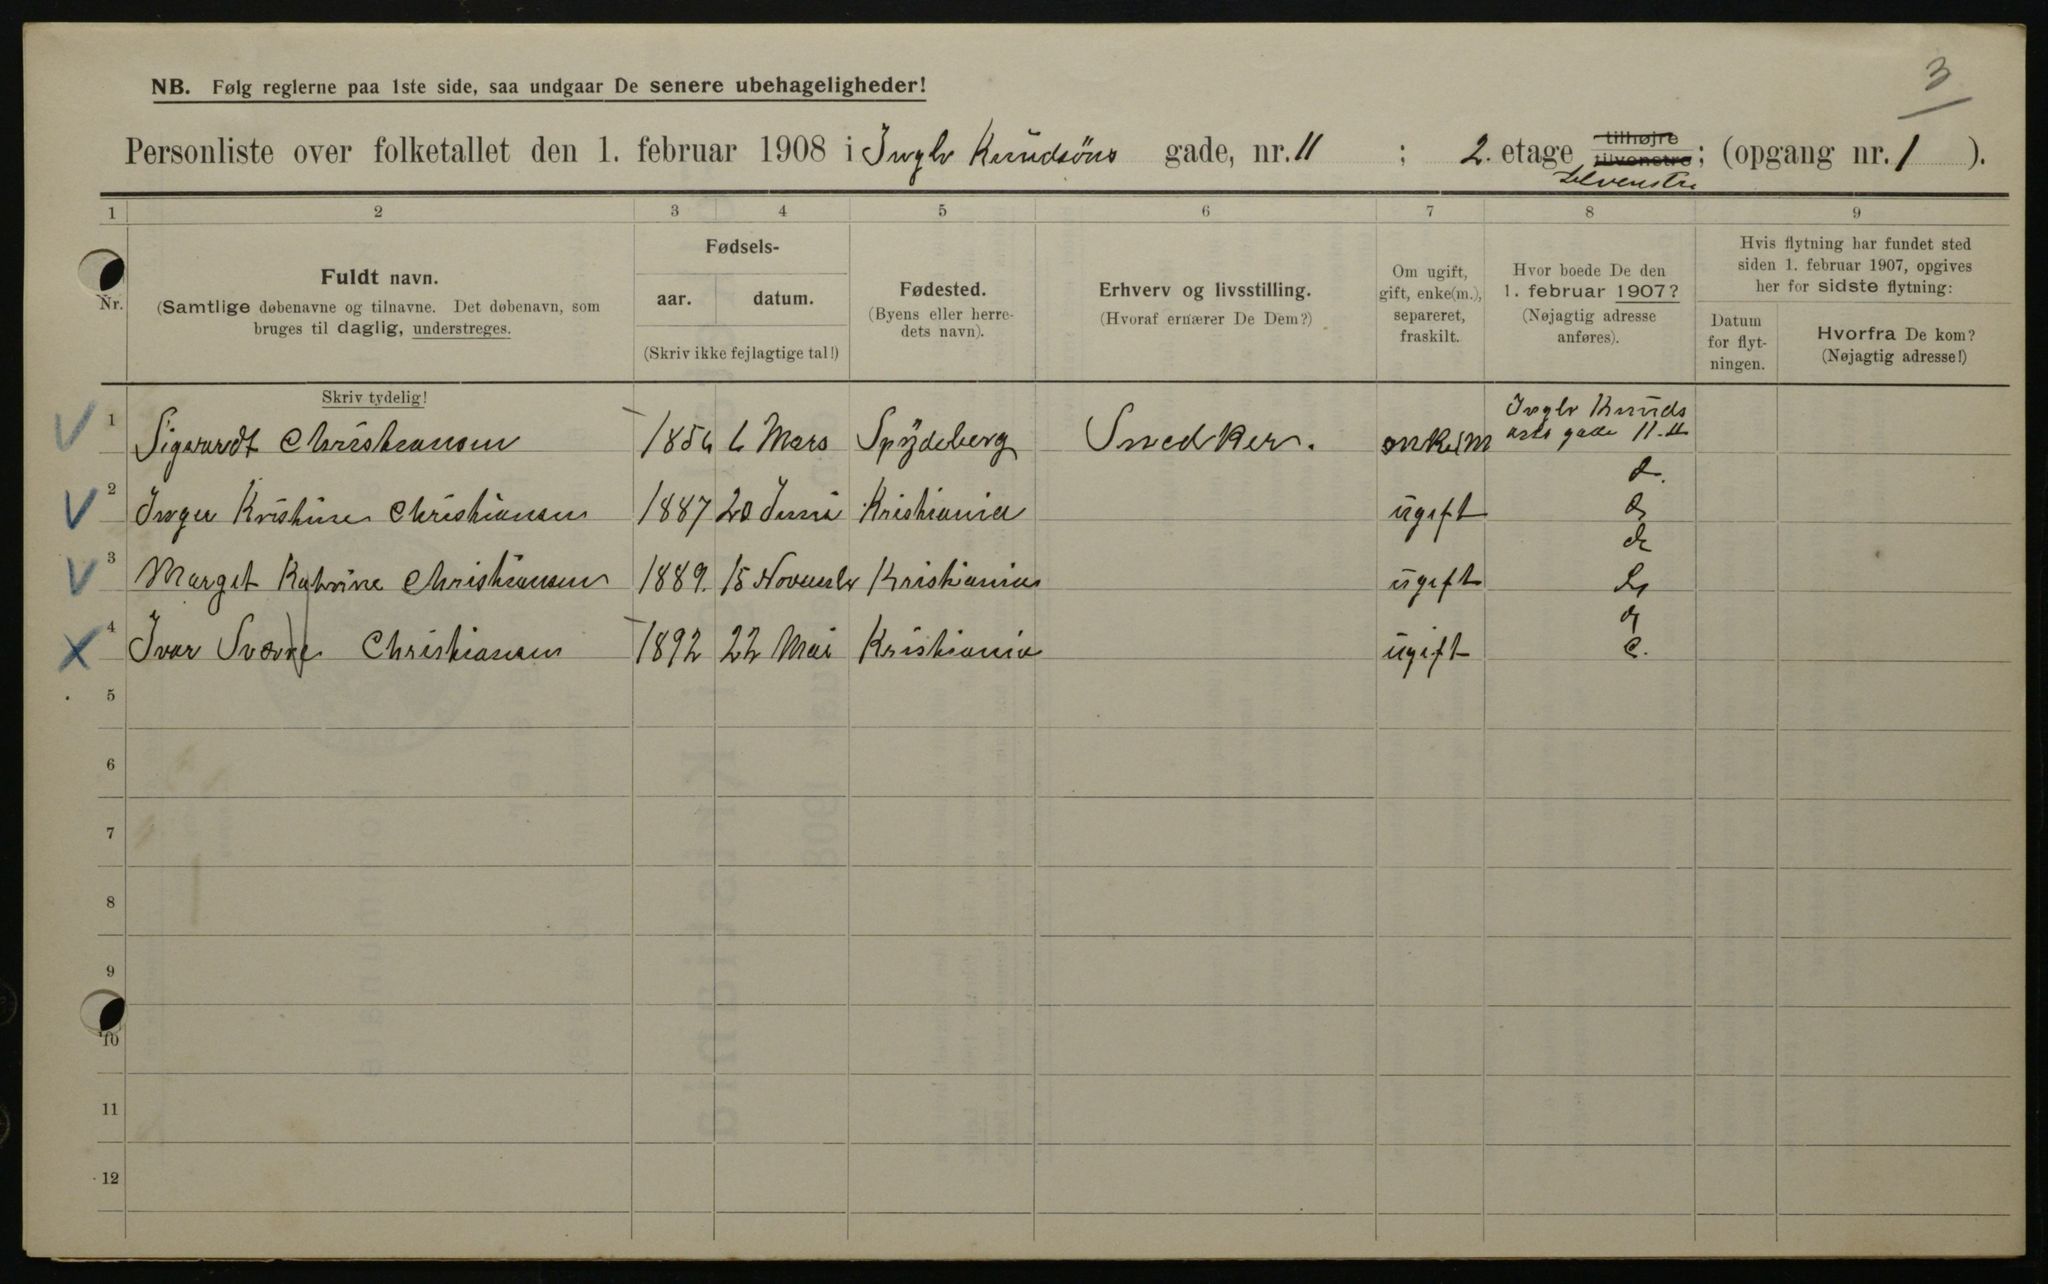 3
NB. Følg reglerne paa 1ste side, saa undgaar De senere ubehageligheder!
Personliste over folketallet den 1. februar 1908 i Ingelv Knudsöns gade, nr. 11 ; 2. etage tilhøjre tilvenstre; (opgang nr. 1 ).
tilvenstre
1 2 3 4 5 6 7 8 9
Nr.
Fuldt navn.
(Samtlige døbenavne og tilnavne. Det døbenavn, som
bruges til daglig, understreges.
Fødsels-
aar. datum.
(Skriv ikke fejlagtige tal!)
Fødested.
(Byens eller herre-
dets navn).
Erhverv og livsstilling.
(Hvoraf ernærer De Dem?)
Om ugift,
gift, enke(m.),
separeret,
fraskilt.
Hvor boede De den
1. februar 1907?
(Nøjagtig adresse
anføres).
Hvis flytning har fundet sted
siden 1. februar 1907, opgives
her for sidste flytning:
Datum
for flyt-
ningen.
Hvorfra De kom?
(Nøjagtig adresse!)
Skriv tydelig!
1 Christiansen 1856 6 Mars Spydeberg Snedker. enkem gade 11
2 Inger Kristine Christiansen 1887 20 Juni Kristiania ugift
3 Marget Katrine Christiansen 1889. 15 Novembr Kristiania ugift
4 Ivar Sverre Christiansen 1892 22 Mai Kristiania ugift
5
6
7
8
9
10
11
12